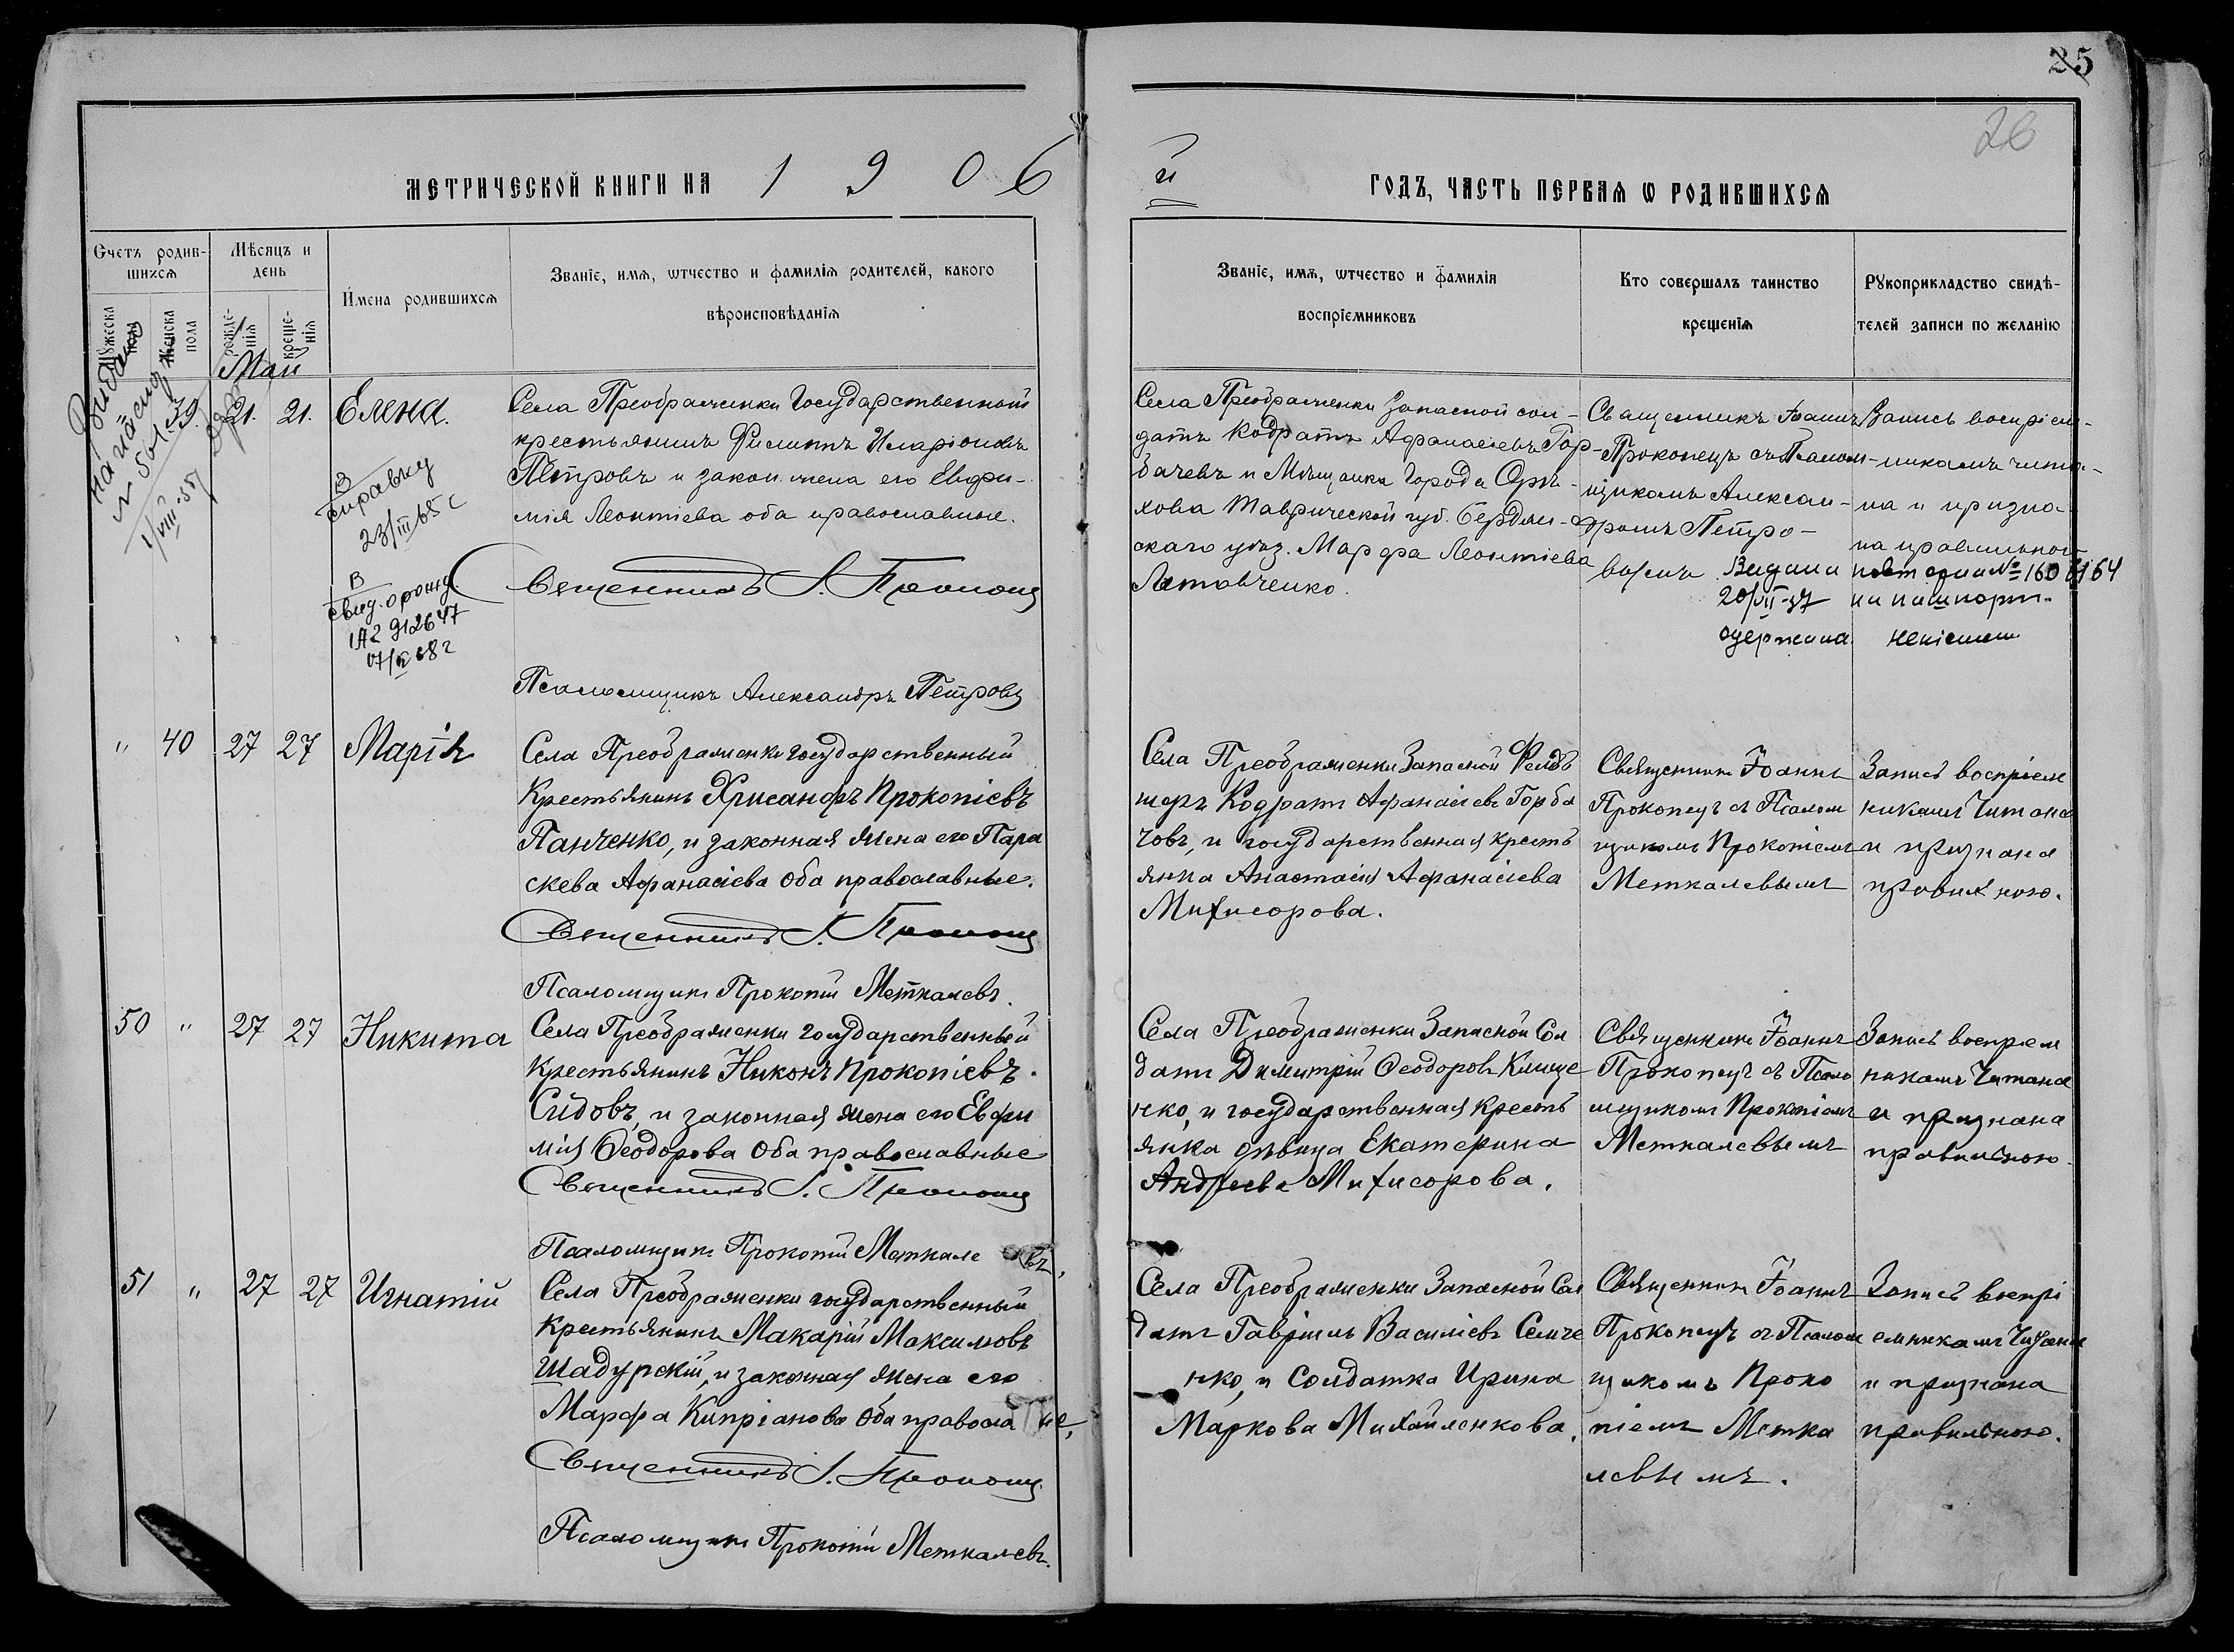 25
26
МЕТРИЧЕСКОЙ КНИГИ НА 1906
й ГОДЪ, ЧАСТЬ ПЕРВАЯ Ѡ РОДИВШИХСЯ
Счетъ родив-
шихся
Мѣсяцъ и
день
Имена родившихся
Званіе, имя, ѡтчество и фамилія родителей, какого
вѣроисповѣданія
Мужеска
пола
Женска
пола
рожде-
нія
креще-
нія
Званіе, имя, ѡтчество и фамилія
воспріемниковъ
Кто совершалъ таинство
крещенія
Рꙋкоприкладство свидѣ-
телей записи по желанію
Май
39. 21. 21. Елена.
В
справку
23/III 65 г
В
свид. о рожд.
07/ 68 г
Села Преображенки Государственной
крестьянинъ Филиппъ Иларіоновъ
Петровъ и закон. жена его Евфи-
мія Леонтіева оба православные.
Священникъ І. Прокопец
Псаломщикъ Александръ Петровъ
Села Преображенки Запасной сол-
датъ Кодратъ Афанасіевъ Гор-
бачевъ и Мѣщанка Города Орѣ-
хова Таврической губ. Бердян-
скаго уѣз. Марфа Леонтіева
Литовченко.
Священникъ Іоаннъ
Прокопецъ съ Псалом-
щикомъ Алексан-
дромъ Петро-
вымъ
Запись воспріем-
никамъ чита-
на и призна-
на правильною
Видана
20/VII-37
одержина
" 40 27 27 Марія
Села Преображенки государственный
Крестьянинъ Хрисанфъ Прокопіевъ
Панченко, и законная жена его Пара
скева Афанасіева Оба православные.
Священникъ І. Прокопец
Псаломщикъ Прокопій Меткалевъ.
Села Преображенки Запасной Фельд
шеръ Кодратъ Афанасіевъ Горба
човъ, и государственная кресть
янка Анастасія Афанасіева
Мифисорова.
Священникъ Іоаннъ
Прокопецъ съ Псалом
щикомъ Прокопіемъ
Меткалевымъ
Запись воспріем
никамъ Читана
и признана
правильною.
50 " 27 27 Никита
Села Преображенки государственный
Крестьянинъ Никонъ Прокопіевъ
Сидовъ, и законная жена его Евфи
мія Ѳеодорова Оба православные
Священникъ І. Прокопец
Псаломщикъ Прокопій Меткалевъ,
Села Преображенки Запасной Сол
датъ Димитрій Ѳеодоровъ Клище
нко, и государственная Кресть
янка дѣвица Екатерина
Андреева Мифисорова.
Священникъ Іоаннъ
Прокопецъ съ Псало
мщикомъ Прокопіемъ
Меткалевымъ
Запись воспріем
никамъ Читана
и признана
правильною.
51 " 27 27 Игнатій
Села Преображенки государственный
Крестьянинъ Макарій Максимовъ
Шадурскій, и законная жена его
Марфа Кипріанова Оба правосла не,
Священникъ І. Прокопец.
Псаломщикъ Прокопій Меткалевъ.
Села Преображенки Запасной Сол
датъ Гавріилъ Василіевъ Семче
нко, и Солдатка Ирина
Маркова Михайленкова.
Священникъ Іоаннъ
Прокопецъ съ Псалом
щикомъ Проко
піемъ Метка
левымъ.
Запись воспрі
емникамъ Читана
и признана
правильною.